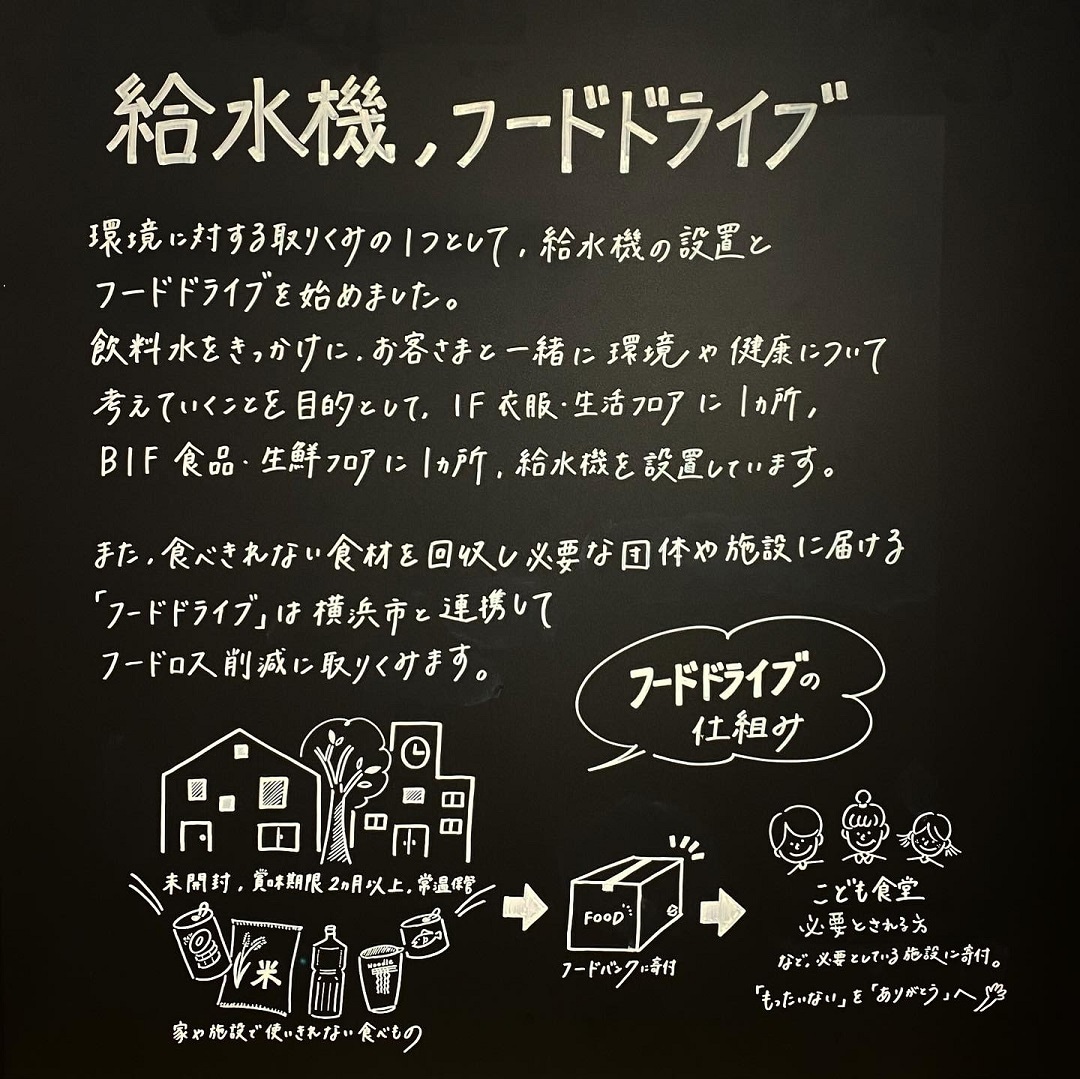 給水機,フードドライブ
環境に対する取りくみの1つとして,給水機の設置と
フードドライブを始めました。
飲料水をきっかけに,お客さまと一緒に環境や健康について
考えていくことを目的として,1F 衣服・生活フロアに1ヵ所,
B1F 食品・生鮮フロアに1ヵ所,給水機を設置しています。
また,食べきれない食材を回収し必要な団体や施設に届ける
「フードドライブ」は横浜市と連携して
フードロス削減に取りくみます。
フードドライブの
仕組み
未開封,賞味期限2ヵ月以上,常温保管
米
Noodle
家や施設で使いきれない食べもの
FOOD
フードバンクに寄付
こども食堂
必要とされる方
など,必要としている施設に寄付。
「もったいない」を「ありがとう」へ